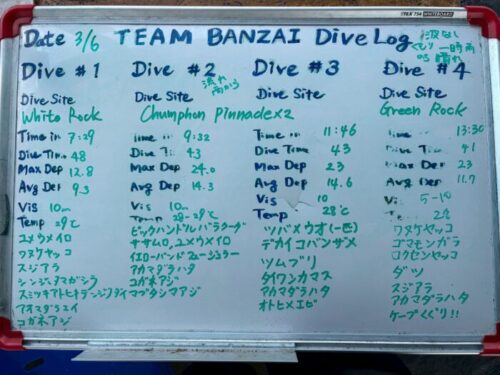 Date 3/6 TEAM BANZAI Dive Log
波なし
くもり 一時雨
のち晴れ
Dive #1
Dive Site
White Rock
Time in 7:29
Dive Time 48
Max Dep 12.8
Avg Dep 9.3
Vis 10m
Temp 29℃
ユメウメイロ
ワヌケヤッコ
スジアラ
アオマダラエイ
コガネアジ
Dive #2
流れ
南から
Dive Site
Chumphon Pinnacle×2
Time in 9:32
Dive Time 43
Max Dep 24.0
Avg Dep 14.3
Vis 10m
Temp 28-29℃
ピックハンドルバラクーダ
ササムロ, ユメウメイロ
イエローバンドフュージュラー
アカマダラハタ
コガネアジ
マブタシマアジ
Dive #3
Time in 11:46
Dive Time 43
Max Dep 23
Avg Dep 14.6
Vis 10
Temp 28℃
ツバメウオ(一匹)
デカイコバンザメ
ツムブリ
タイワンカマス
アカマダラハタ
オトヒメエビ
Dive #4
Dive Site
Green Rock
13:30
Dive Time 41
Max Dep 23
Avg Dep 11.7
Vis 5-10
28
ワヌケヤッコ
ゴマモンガラ
ロクセンヤッコ
ダツ
スジアラ
アカマダラハタ
ケーブくぐり!!